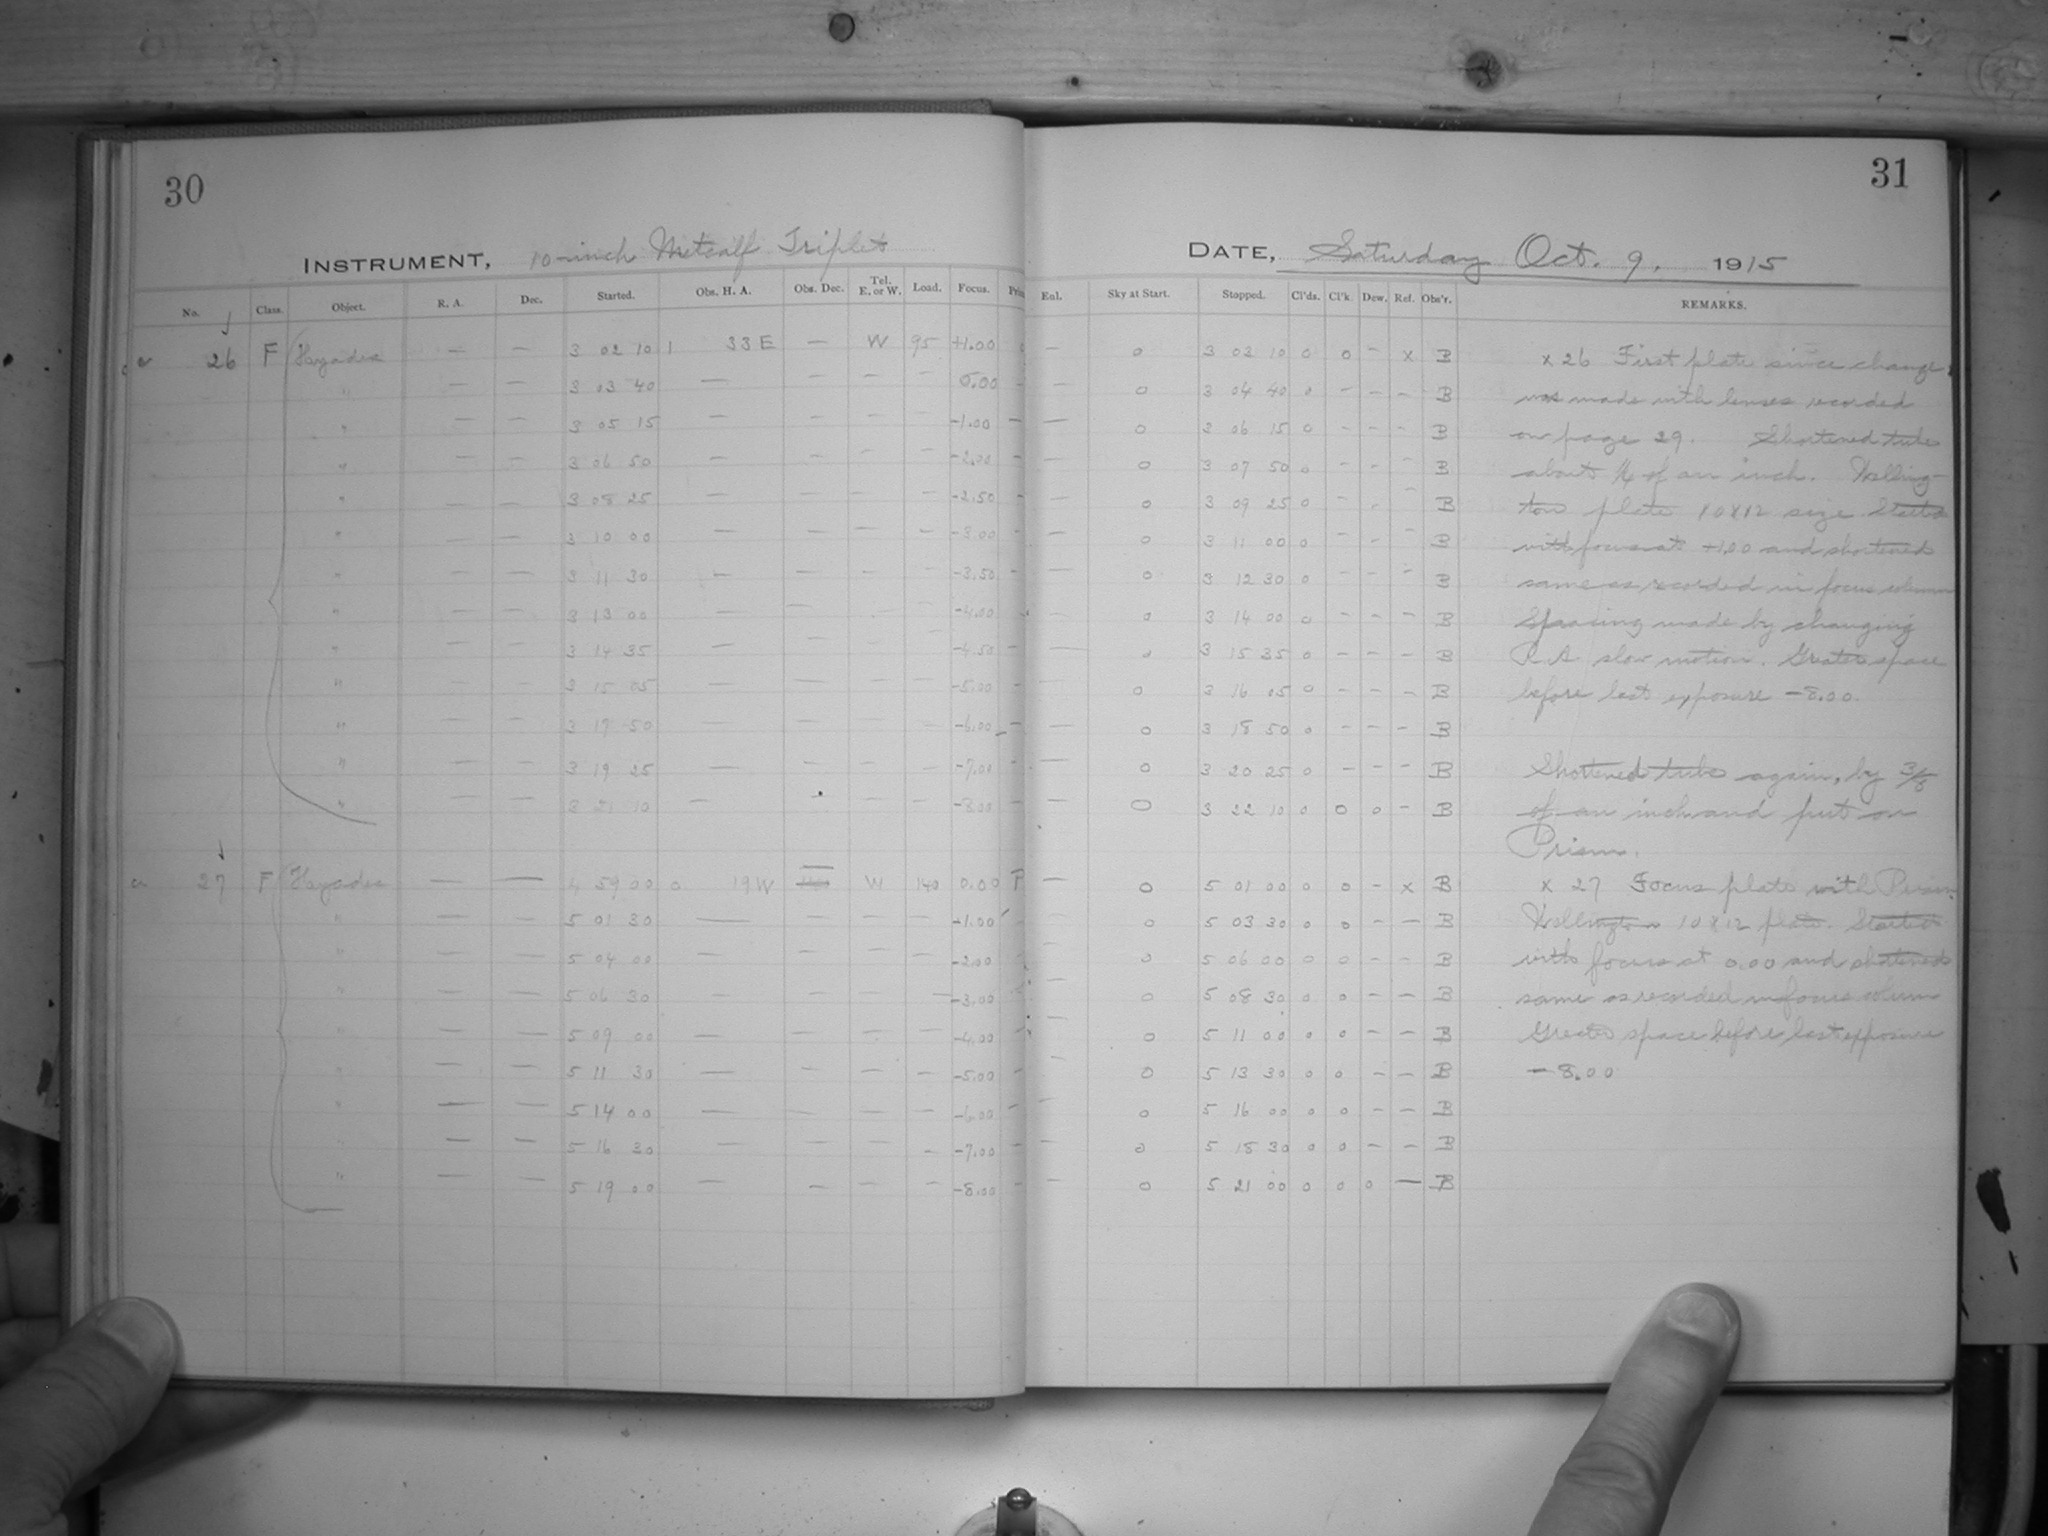 30
INSTRUMENT, 10-inch Metcalf Triplet
No. Class. Object. R. A. Dec. Started. Obs. H. A. Obs. Dec. Tel. E. or W. Load. Focus.
a 26 F — — 3 02 10 1 33 E — W 95 +1.00
" — — 3 03 40 — — — — 0.00 —
" — — 3 05 15 — — — — -1.00 —
" — — 3 06 50 — — — — -2.00
" — — 3 08 25 — — — — -2.50
" — — 3 10 00 — — — — -3.00
" — — 3 11 30 — — — — -3.50
" — — 3 13 00 — — — — -4.00
" — — 3 14 35 — — — — -4.50
" — — 3 15 05 — — — — -5.00
" — — 3 17 50 — — — — -6.00
" — — 3 19 25 — — — — -7.00
" — — 3 21 10 — — — — -8.00
a 27 F — — 4 59 00 0 19 W W 140 0.00 P
" — — 5 01 30 — — — — -1.00
" — — 5 04 00 — — — — -2.00
" — — 5 06 30 — — — — -3.00
" — — 5 09 00 — — — — -4.00
" — — 5 11 30 — — — — -5.00
" — — 5 14 00 — — — — -6.00
" — — 5 16 30 — — — — -7.00
" — — 5 19 00 — — — — -8.00
31
DATE, Saturday Oct. 9, 1915
Enl. Sky at Start. Stopped. Cl'ds. Cl'k. Dew. Ref. Obs'r. REMARKS.
— 0 3 03 10 0 0 - x B
— 0 3 04 40 0 - - - B
— 0 3 06 15 0 - - - B
— 0 3 07 50 0 - - - B
— 0 3 09 25 0 - - - B
— 0 3 11 00 0 - - - B
— 0 3 12 30 0 - - - B
— 0 3 14 00 0 - - - B
— 0 3 15 35 0 - - - B
— 0 3 16 05 0 - - - B
— 0 3 18 50 0 - - - B
— 0 3 20 25 0 - - - B
— 0 3 22 10 0 0 0 - B
— 0 5 01 00 0 0 - x B
— 0 5 03 30 0 0 - - B
— 0 5 06 00 0 0 - - B
— 0 5 08 30 0 0 - - B
— 0 5 11 00 0 0 - - B
— 0 5 13 30 0 0 - - B
— 0 5 16 00 0 0 - - B
— 0 5 18 30 0 0 - - B
— 0 5 21 00 0 0 0 — B
x 26 First plate since change
was made with lenses recorded
on page 29. Shortened tube
about 1/4 of an inch. Welling-
ton plate 10x12 size. Started
with focus at +1.00 and shortened
same as recorded in focus column
Spacing made by changing
R.A. slow motion. Greater space
before last exposure -8.00.
Shortened tube again, by 3/8
of an inch and put on
Prism.
x 27 Focus plate with Prism.
Wellington 10x12 plate. Started
with focus at 0.00 and shortened
same as recorded in focus column
Greater space before last exposure
-8.00